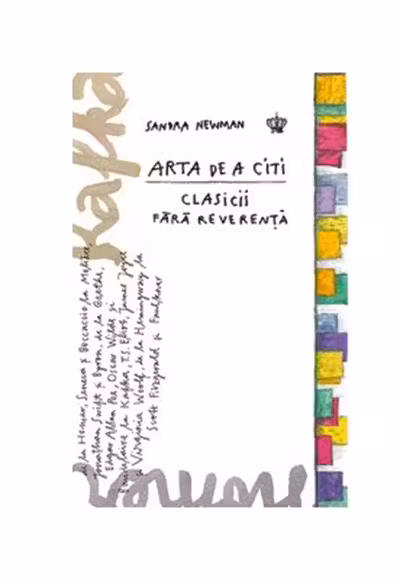 Kafka
SANDRA NEWMAN
ARTA DE A CITI
CLASICII
FĂRĂ REVERENȚĂ
de la Homer, Seneca & Boccaccio la Molière,
Jonathan Swift & Byron, de la Goethe,
Edgar Allan Poe, Oscar Wilde și
Baudelaire la Kafka, T.S. Eliot, James Joyce
& Virginia Woolf, de la Hemingway la
Scott Fitzgerald & Faulkner